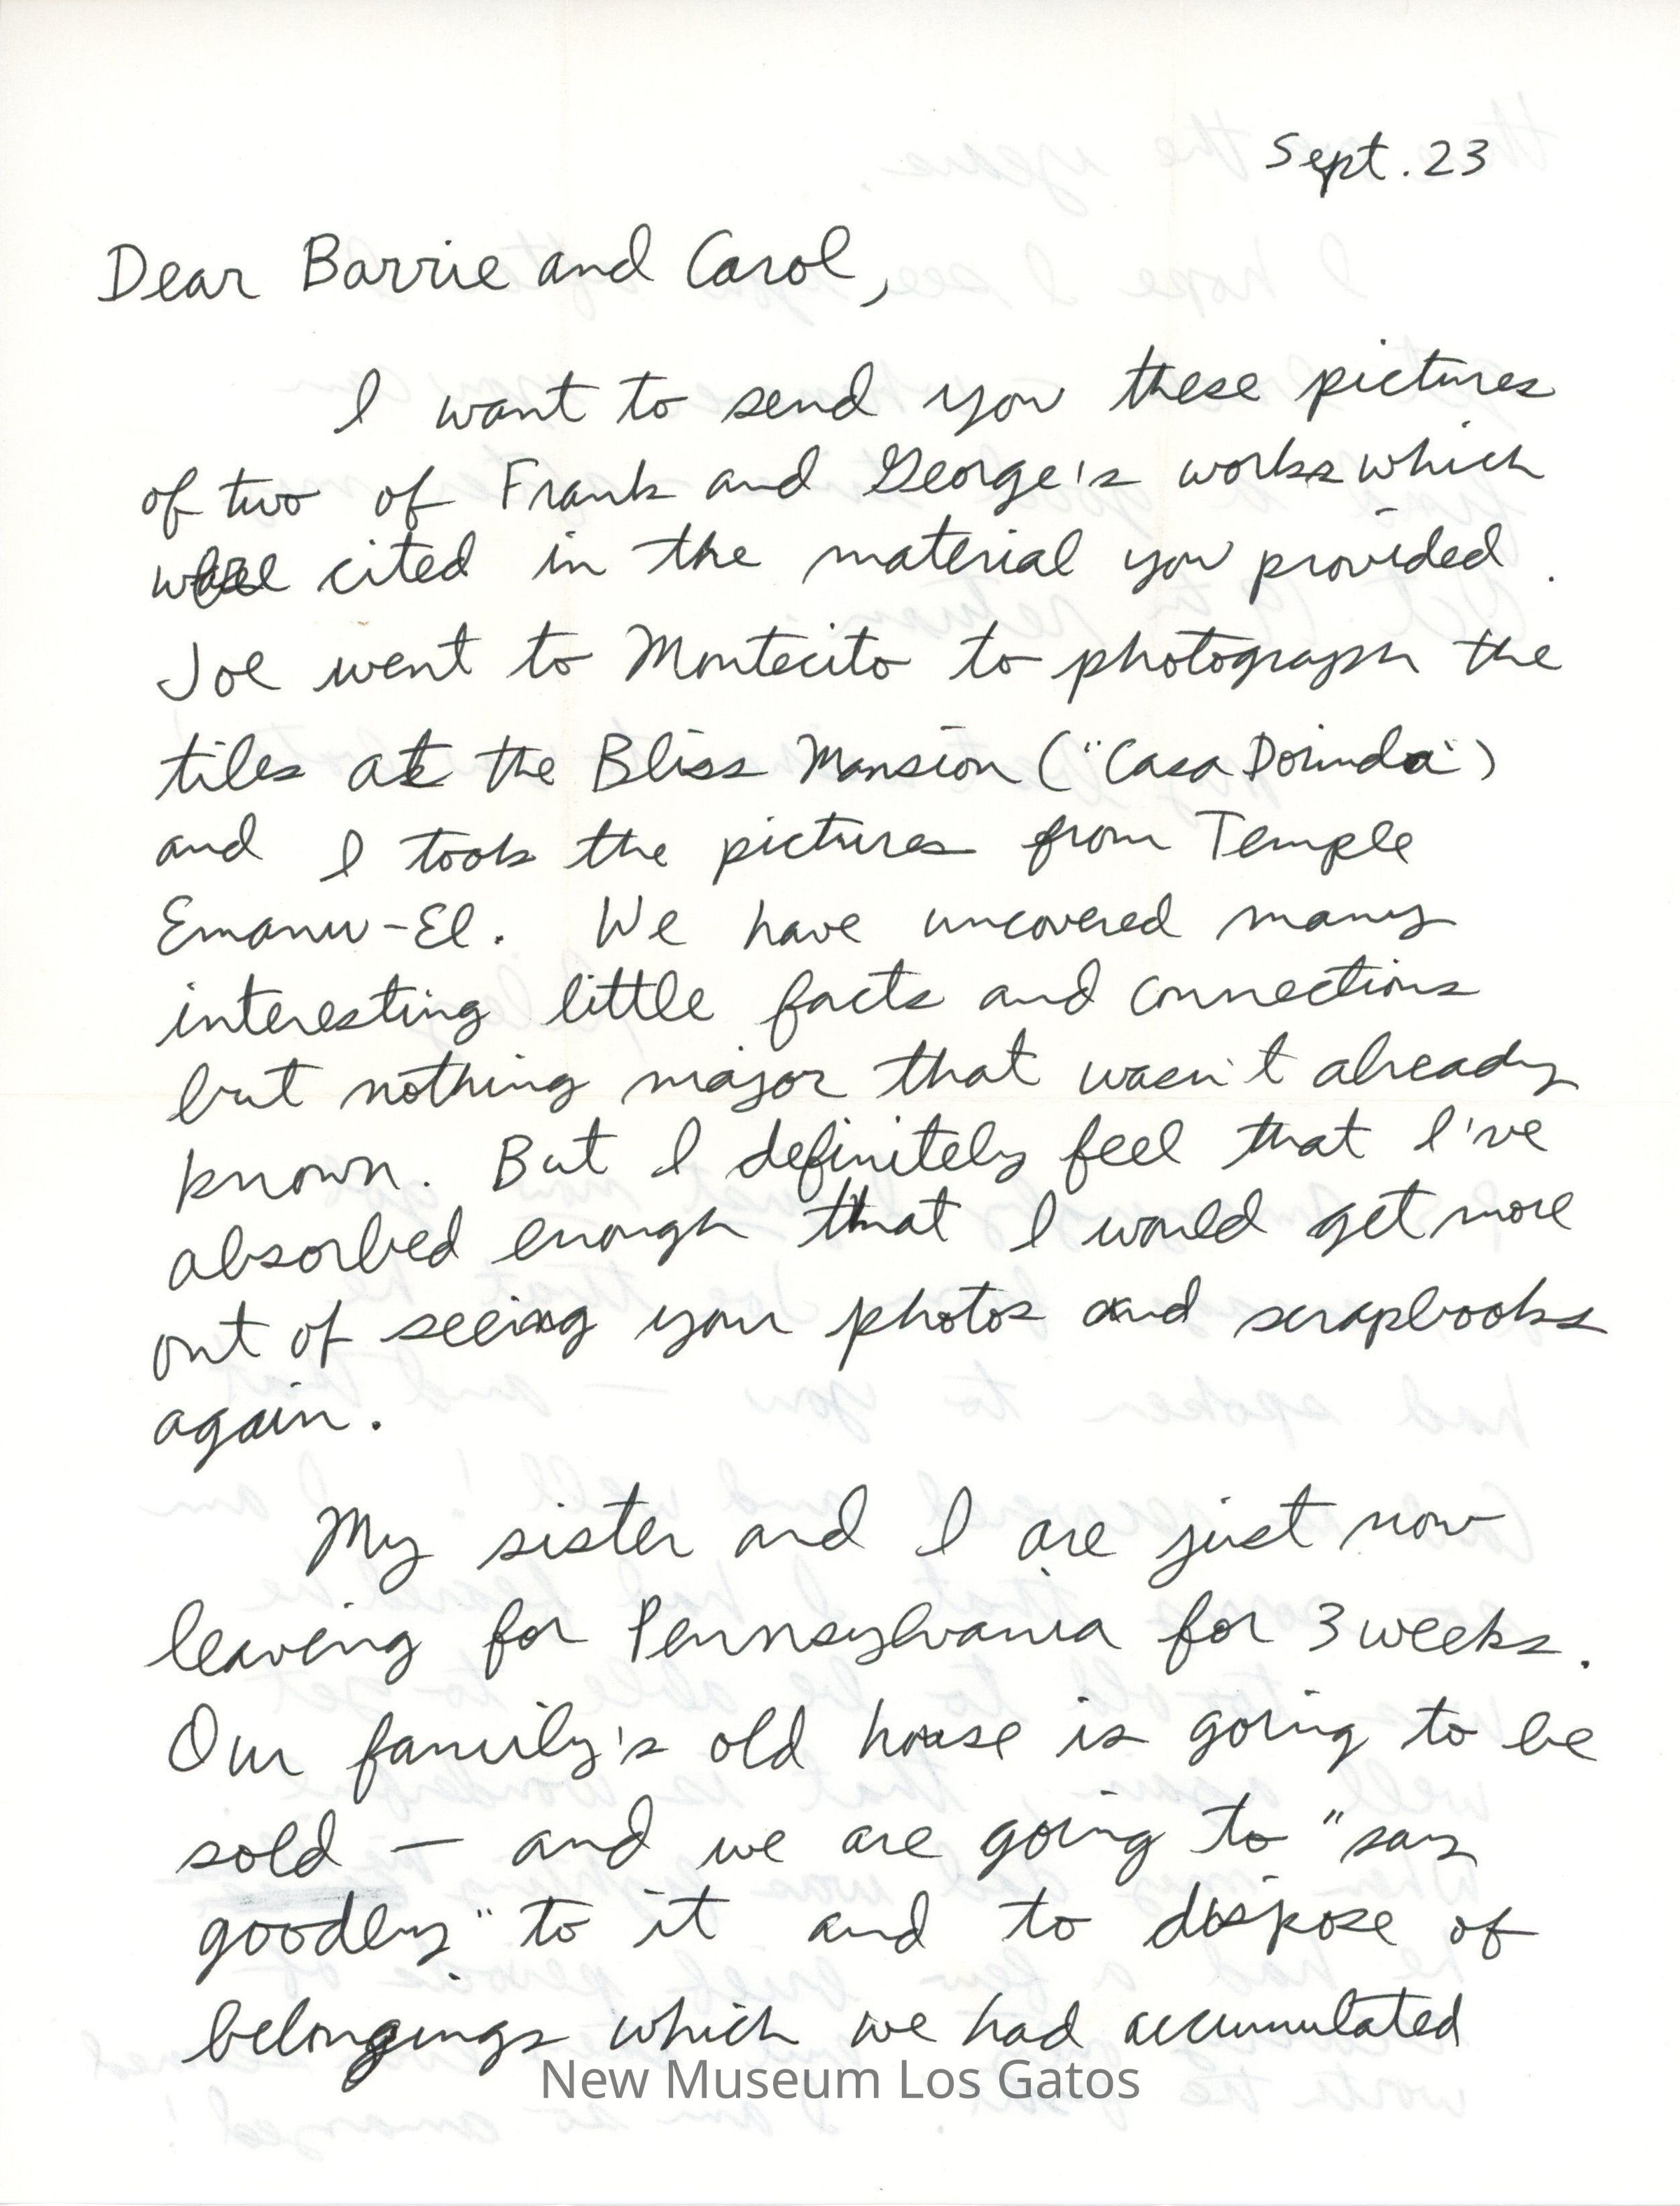 Sept. 23
Dear Barrie and Carol,
I want to send you these pictures
of two of Frank and George's works which
were cited in the material you provided.
Joe went to Montecito to photograph the
tiles at the Bliss Mansion ("Casa Dorinda")
and I took the pictures from Temple
Emanu-El. We have uncovered many
interesting little facts and connections
but nothing major that wasn't already
known. But I definitely feel that I've
absorbed enough that I would get more
out of seeing your photos and scrapbooks
again.
My sister and I are just now
leaving for Pennsylvania for 3 weeks.
Our family's old house is going to be
sold — and we are going to "say
goodby" to it and to dispose of
belongings which we had accumulated
New Museum Los Gatos